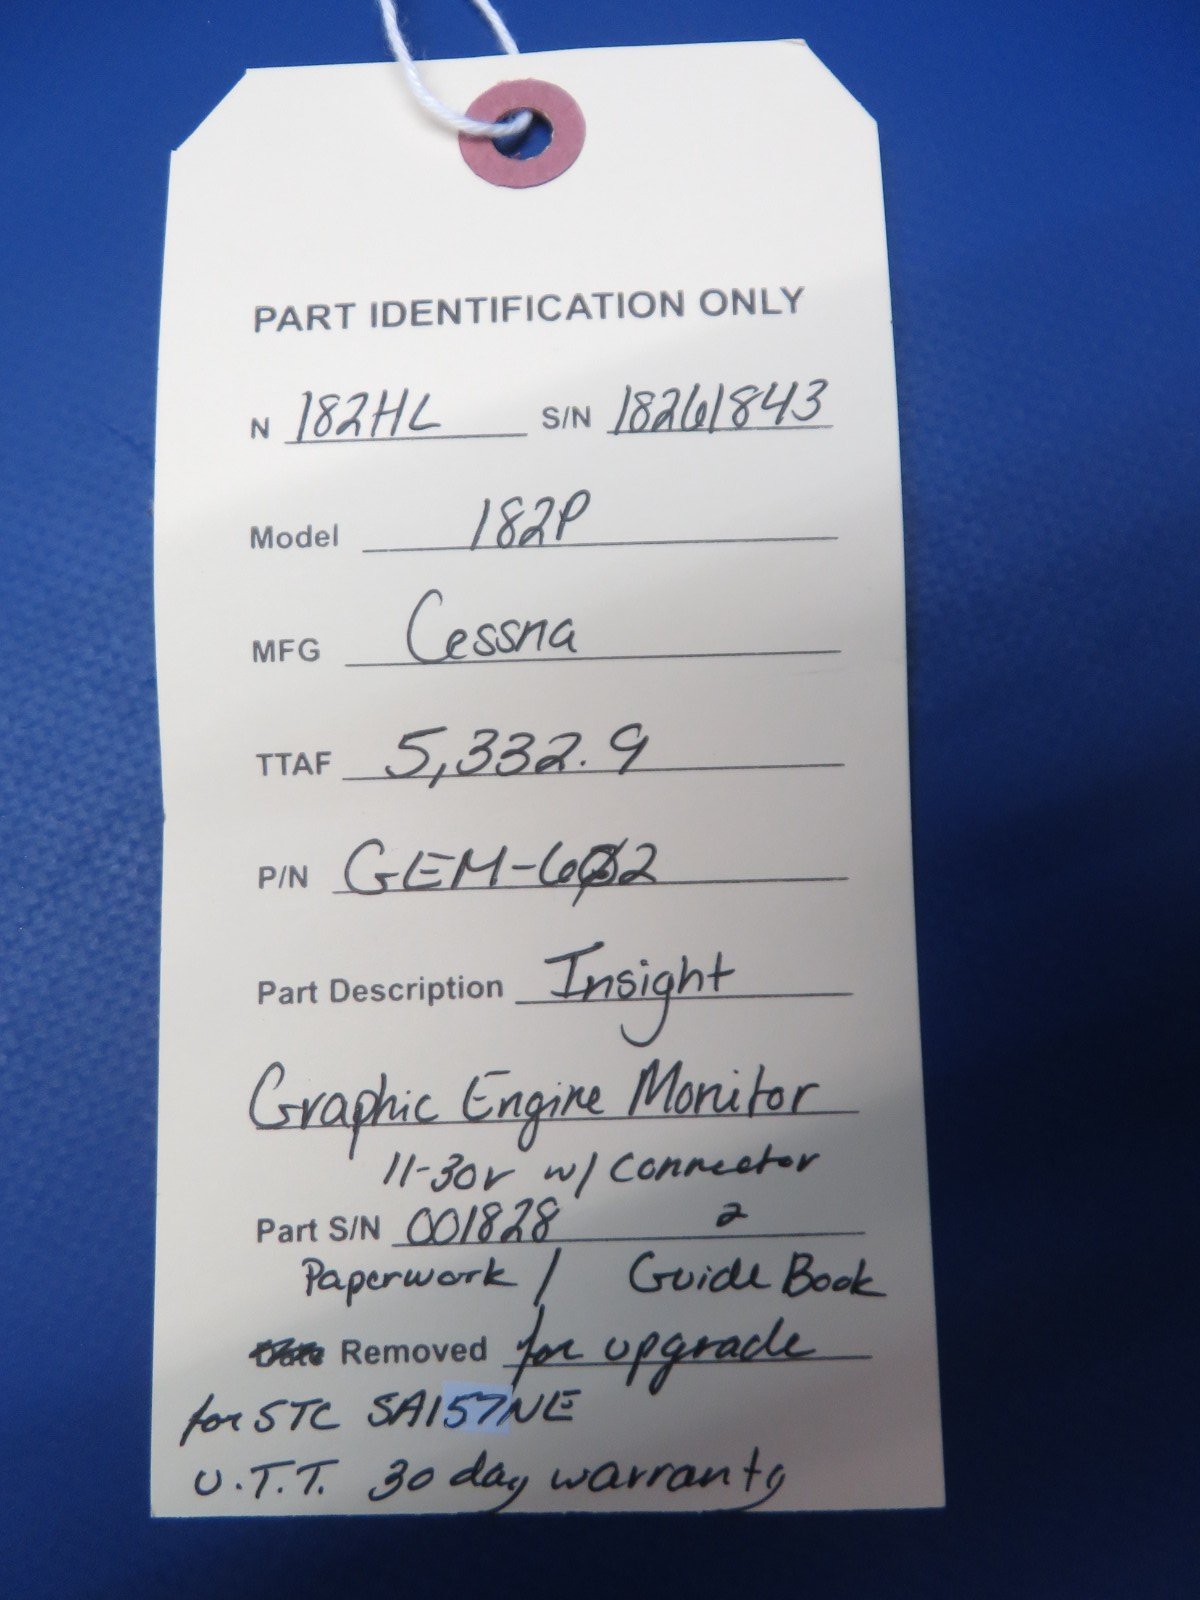 PART IDENTIFICATION ONLY
N 182HL S/N 18261843
Model 182P
MFG Cessna
TTAF 5,332.9
P/N GEM-602
Part Description Insight
Graphic Engine Monitor
11-30v w/ connector
Part S/N 001828 2
Paperwork / Guide Book
Removed for upgrade
for STC SA157NE
U.T.T. 30 day warranty